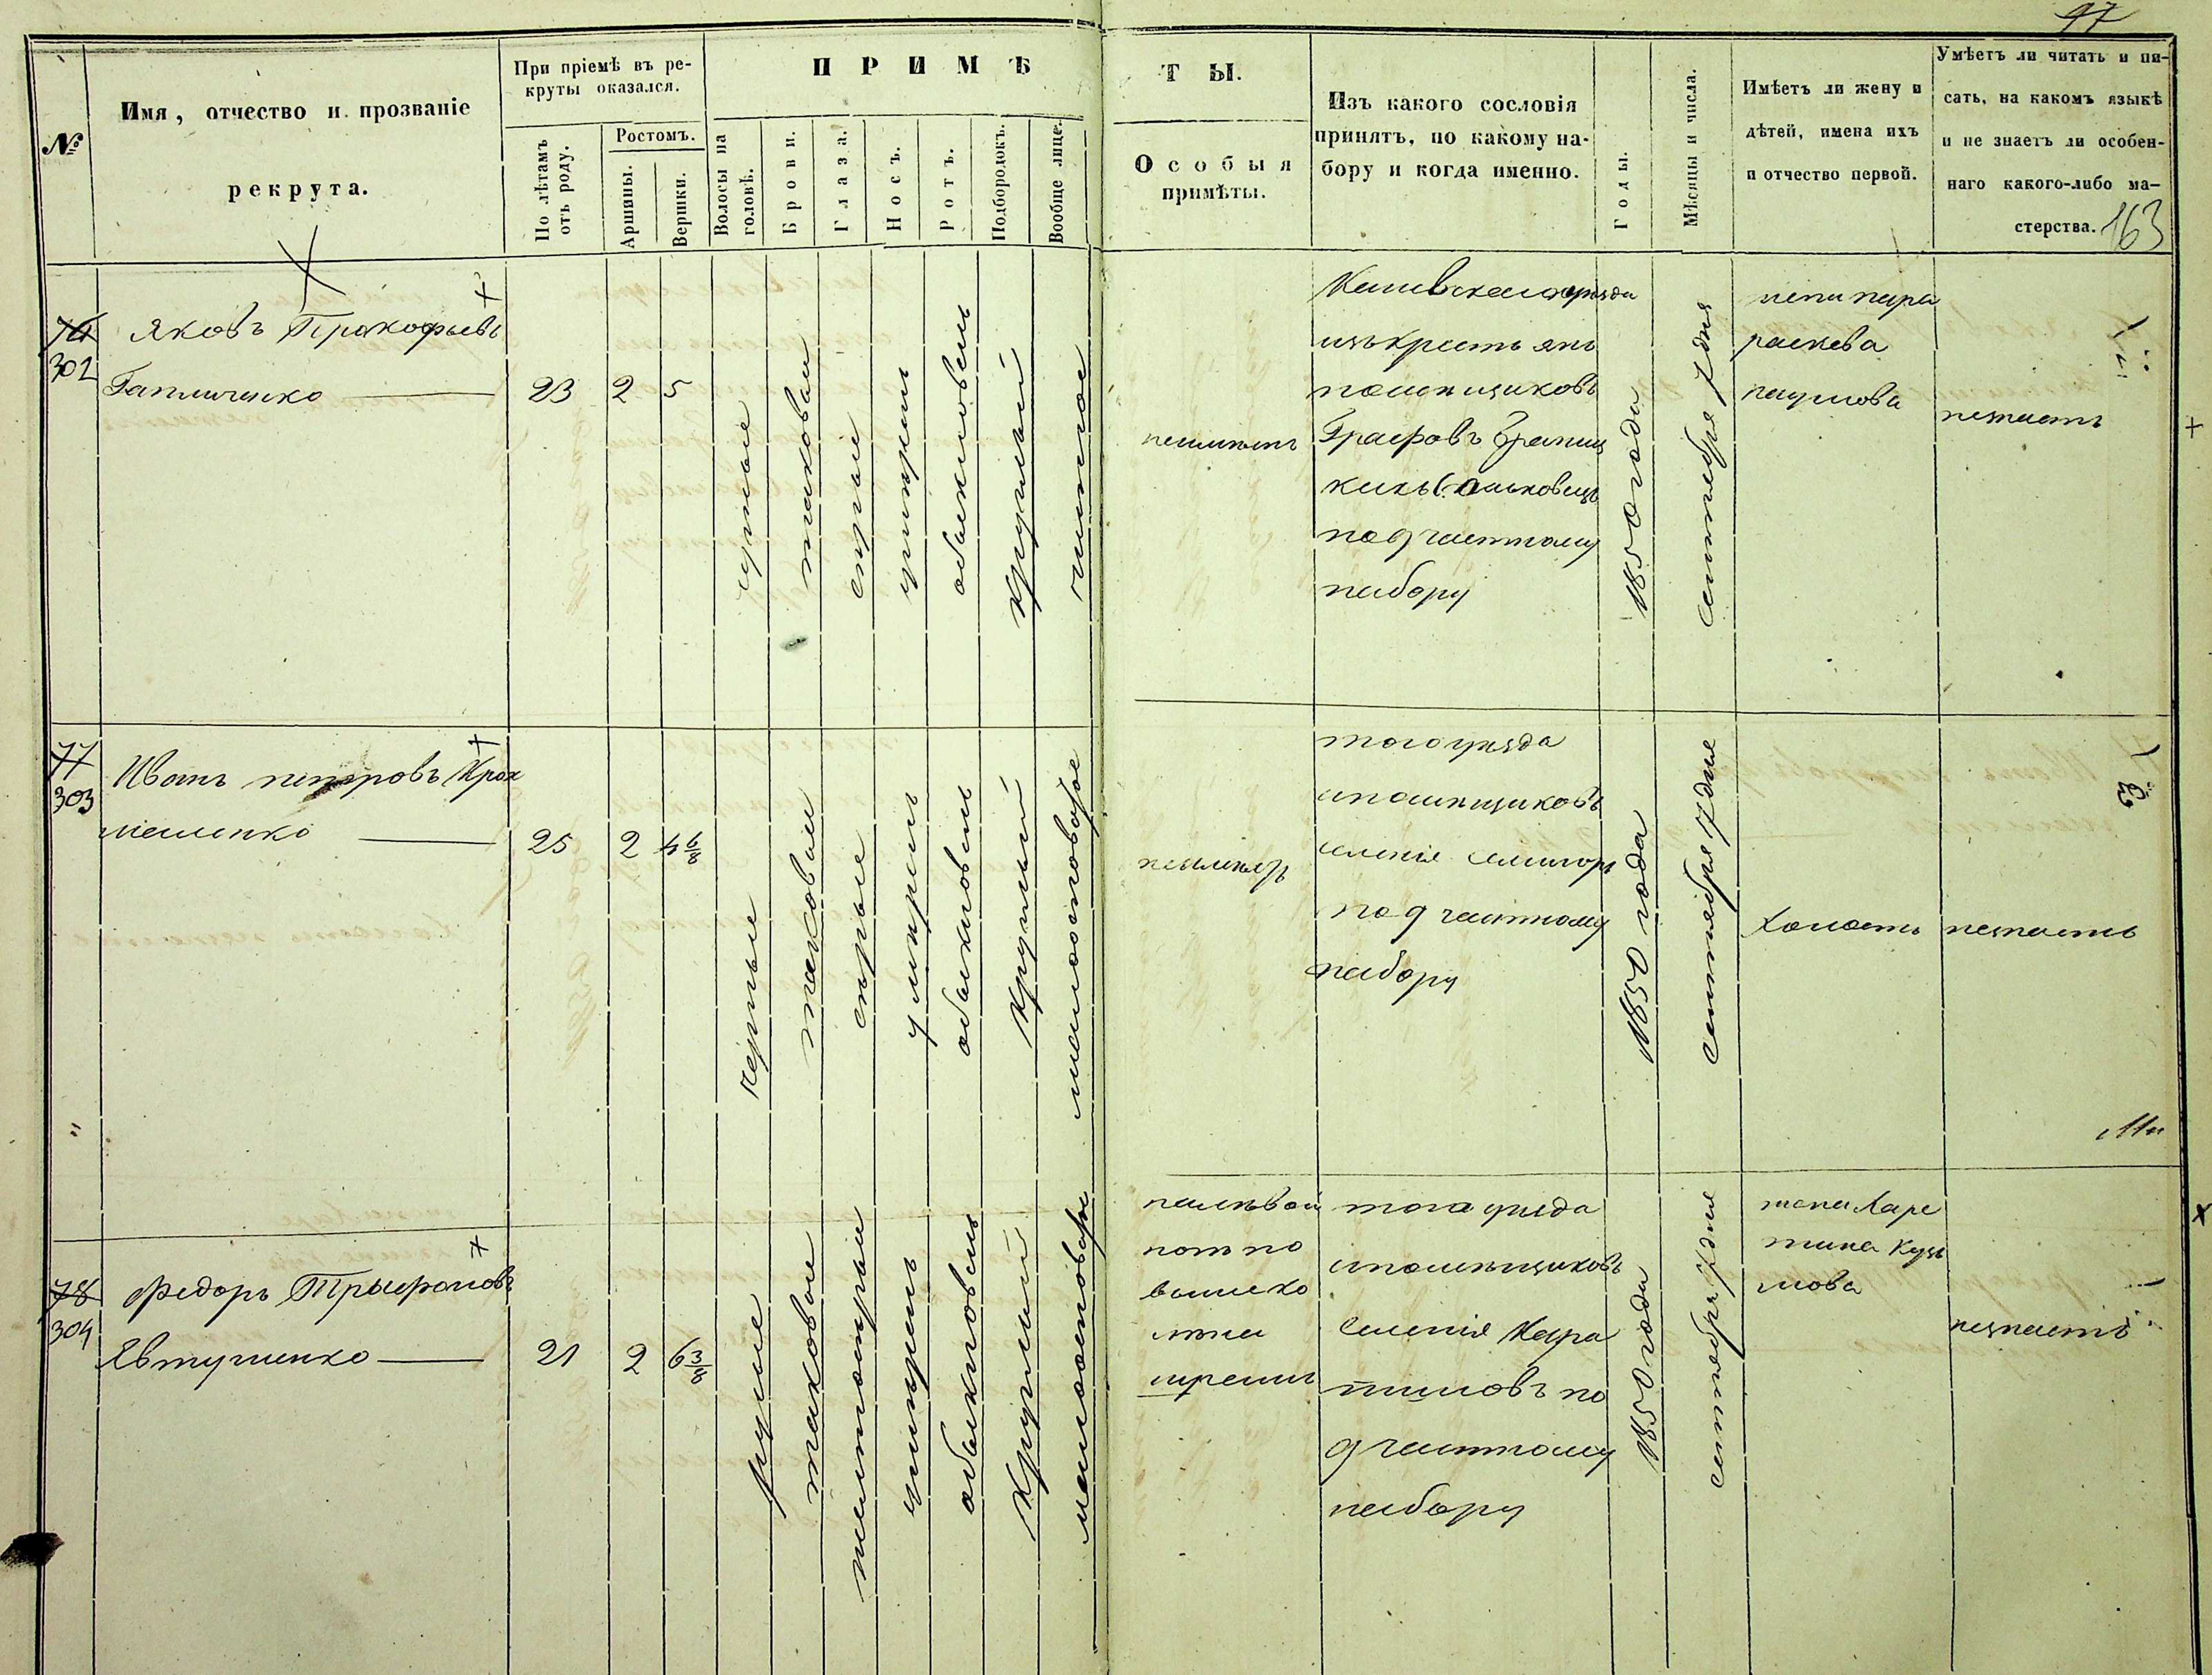 97
№
Имя, отчество и прозваніе
рекрута.
При пріемѣ въ ре-
круты оказался.
По лѣтамъ
отъ роду.
Ростомъ.
Аршины.
Вершки.
ПРИМѢ
ТЫ.
Волосы на
головѣ.
Брови.
Глаза.
Носъ.
Ротъ.
Подбородокъ.
Вообще лице.
Особыя
примѣты.
Изъ какого сословія
принятъ, по какому на-
бору и когда именно.
Годы.
Мѣсяцы и числа.
Имѣетъ ли жену и
дѣтей, имена ихъ
и отчество первой.
Умѣетъ ли читать и пи-
сать, на какомъ языкѣ
и не знаетъ ли особен-
наго какого-либо ма-
стерства.
163
302
Яковъ Прокофьевъ
23
2
5
русые
таковыи
серые
умерен
обыкновен
круглый
чистое
неимеетъ
уезда
изъ крестьянъ
помещиковъ
Графовъ Браниц
кихъ
по 9 частному
набору
1850 года
сентебря 7 дня
жена пара
скева
наумова
незнаетъ
77
303
Иванъ петровъ Крах
маленко
25
2
4 6/8
черные
таковыи
серые
умерен
обыкновен
круглый
малоосповатое
неимеетъ
того уезда
помещиковъ
селенія
по 9 частному
набору
1850 года
сентебря 7 дня
холостъ
незнаетъ
78
304
Федоръ Трыфоновъ
Явтушенко
21
2
6 3/8
русые
таковыи
умерен
обыкновен
круглый
того уезда
помещиковъ
селенія
по
9 частному
набору
1850 года
сентебря 7 дня
жена Харе
тина Кузь
мова
незнаетъ